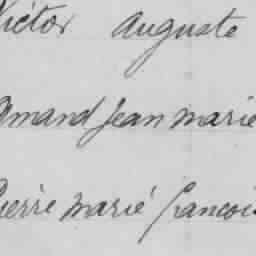 Victor Auguste
Amand Jean marie
Pierre marié francois